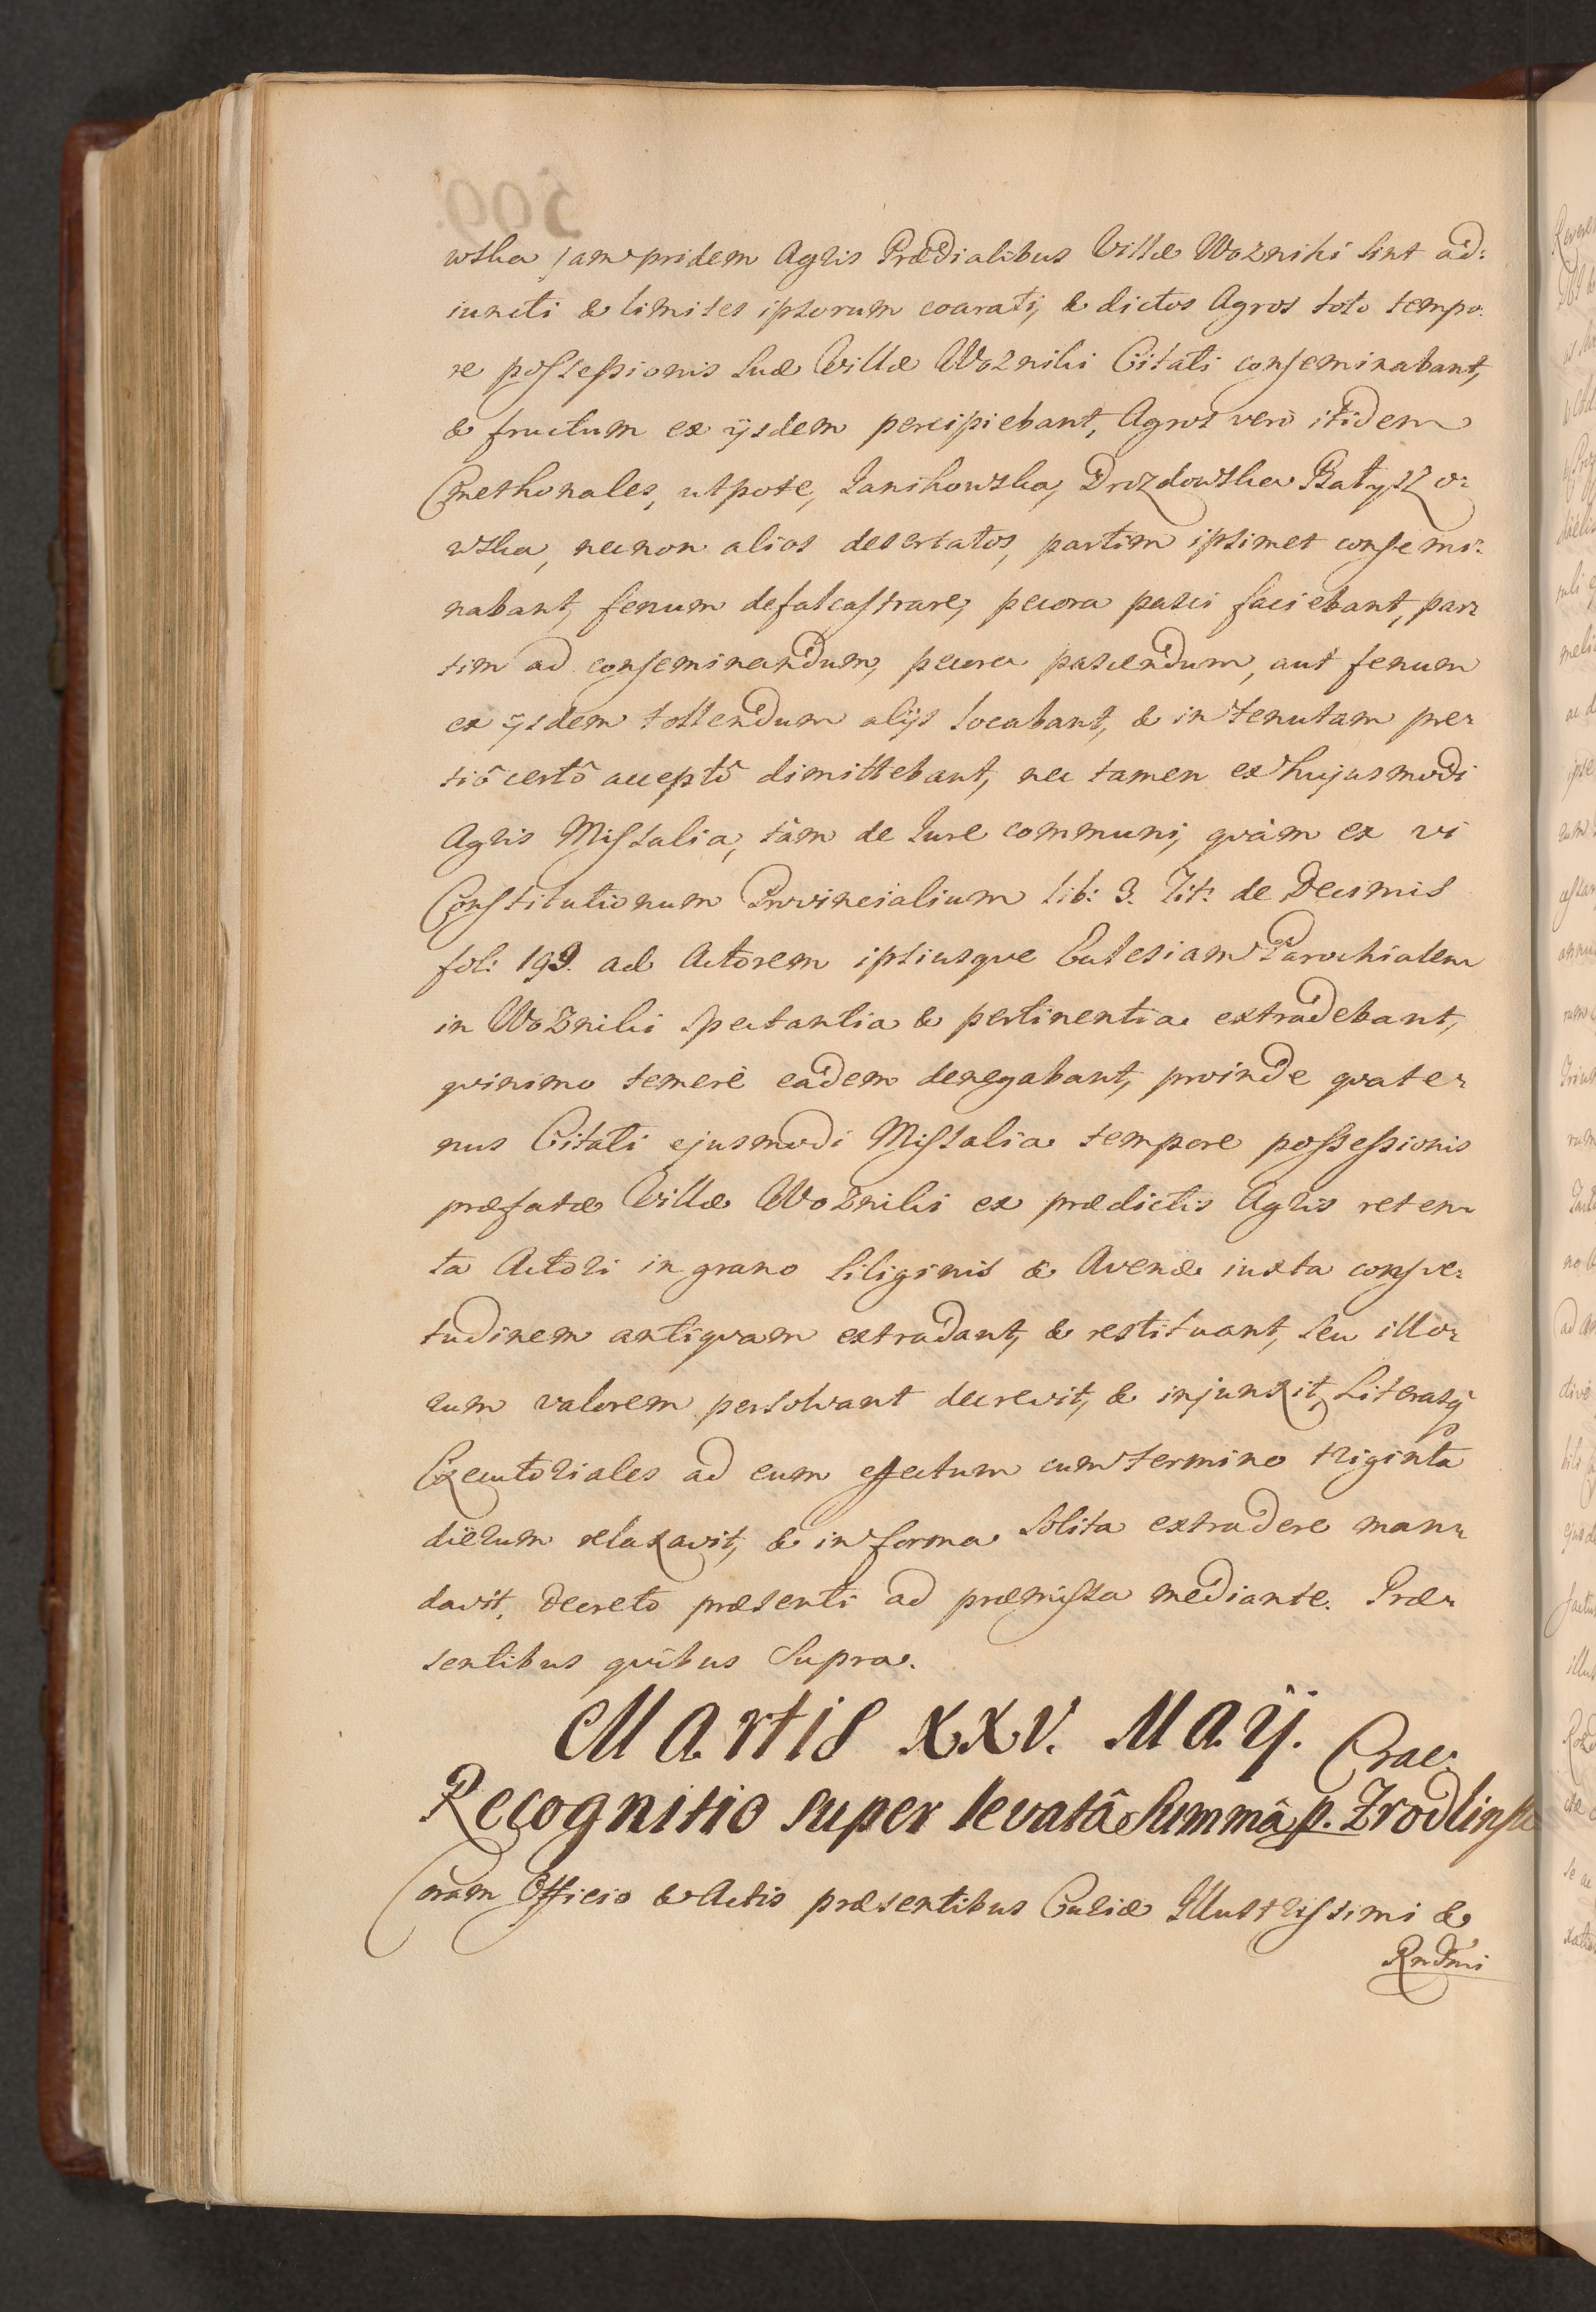 wska jampridem Agris Prædialibus Villæ Wozniki sint ad:
iuncti & limites ipsorum coarati, & dictos Agros toto tempo:
re possessionis suæ Villæ Wozniki Citati conseminabant,
& fructum ex ijsdem percipiebant, Agros verò itidem
Cmethonales, utpote, Janikowska, Drozdowska Ratyszo:
wska, necnon alios desertatos, partim ipsimet consemi:
nabant, fenum defalcastrare, pecora pasci faciebant, par:
tim ad conseminandum, pecora pascendum, aut fenum
ex ijsdem tollendum alijs locabant, & in tenutam pre:
tiô certô acceptô dimittebant, nec tamen ex hujusmodi
Agris Missalia, tàm de Jure communi, quàm ex vi
Constitutionum Provincialium lib: 3. Tit: de Decimis
fol: 199. ad Actorem ipsiusque Eccлesiam Parochialem
in Wozniki spectantia & pertinentia extradebant,
quinimo temerè eadem denegabant, proinde quate:
nus Citati ejusmodi Missalia tempore possessionis
præfatæ Villæ Wozniki ex prædictis Agris reten:
ta Actori in grano siliginis & Avenæ iuxta consve:
tudinem antiquam extradant, & restituant, seu illo:
rum valorem persolvant decrevit, & injunxit, Literasq
Executoriales ad eum effectum cum termino triginta
dierum relaxavit, & in forma solita extradere man:
davit, decreto præsenti ad præmissa mediante. Præ:
sentibus quibus supra.
Martis XXV. Maij.
Crac:
Recognitio super levatâ Summâ p. Zrodlinsk
Coram Officio & Actis præsentibus Curiæ Illustrissimi &
Rndmi